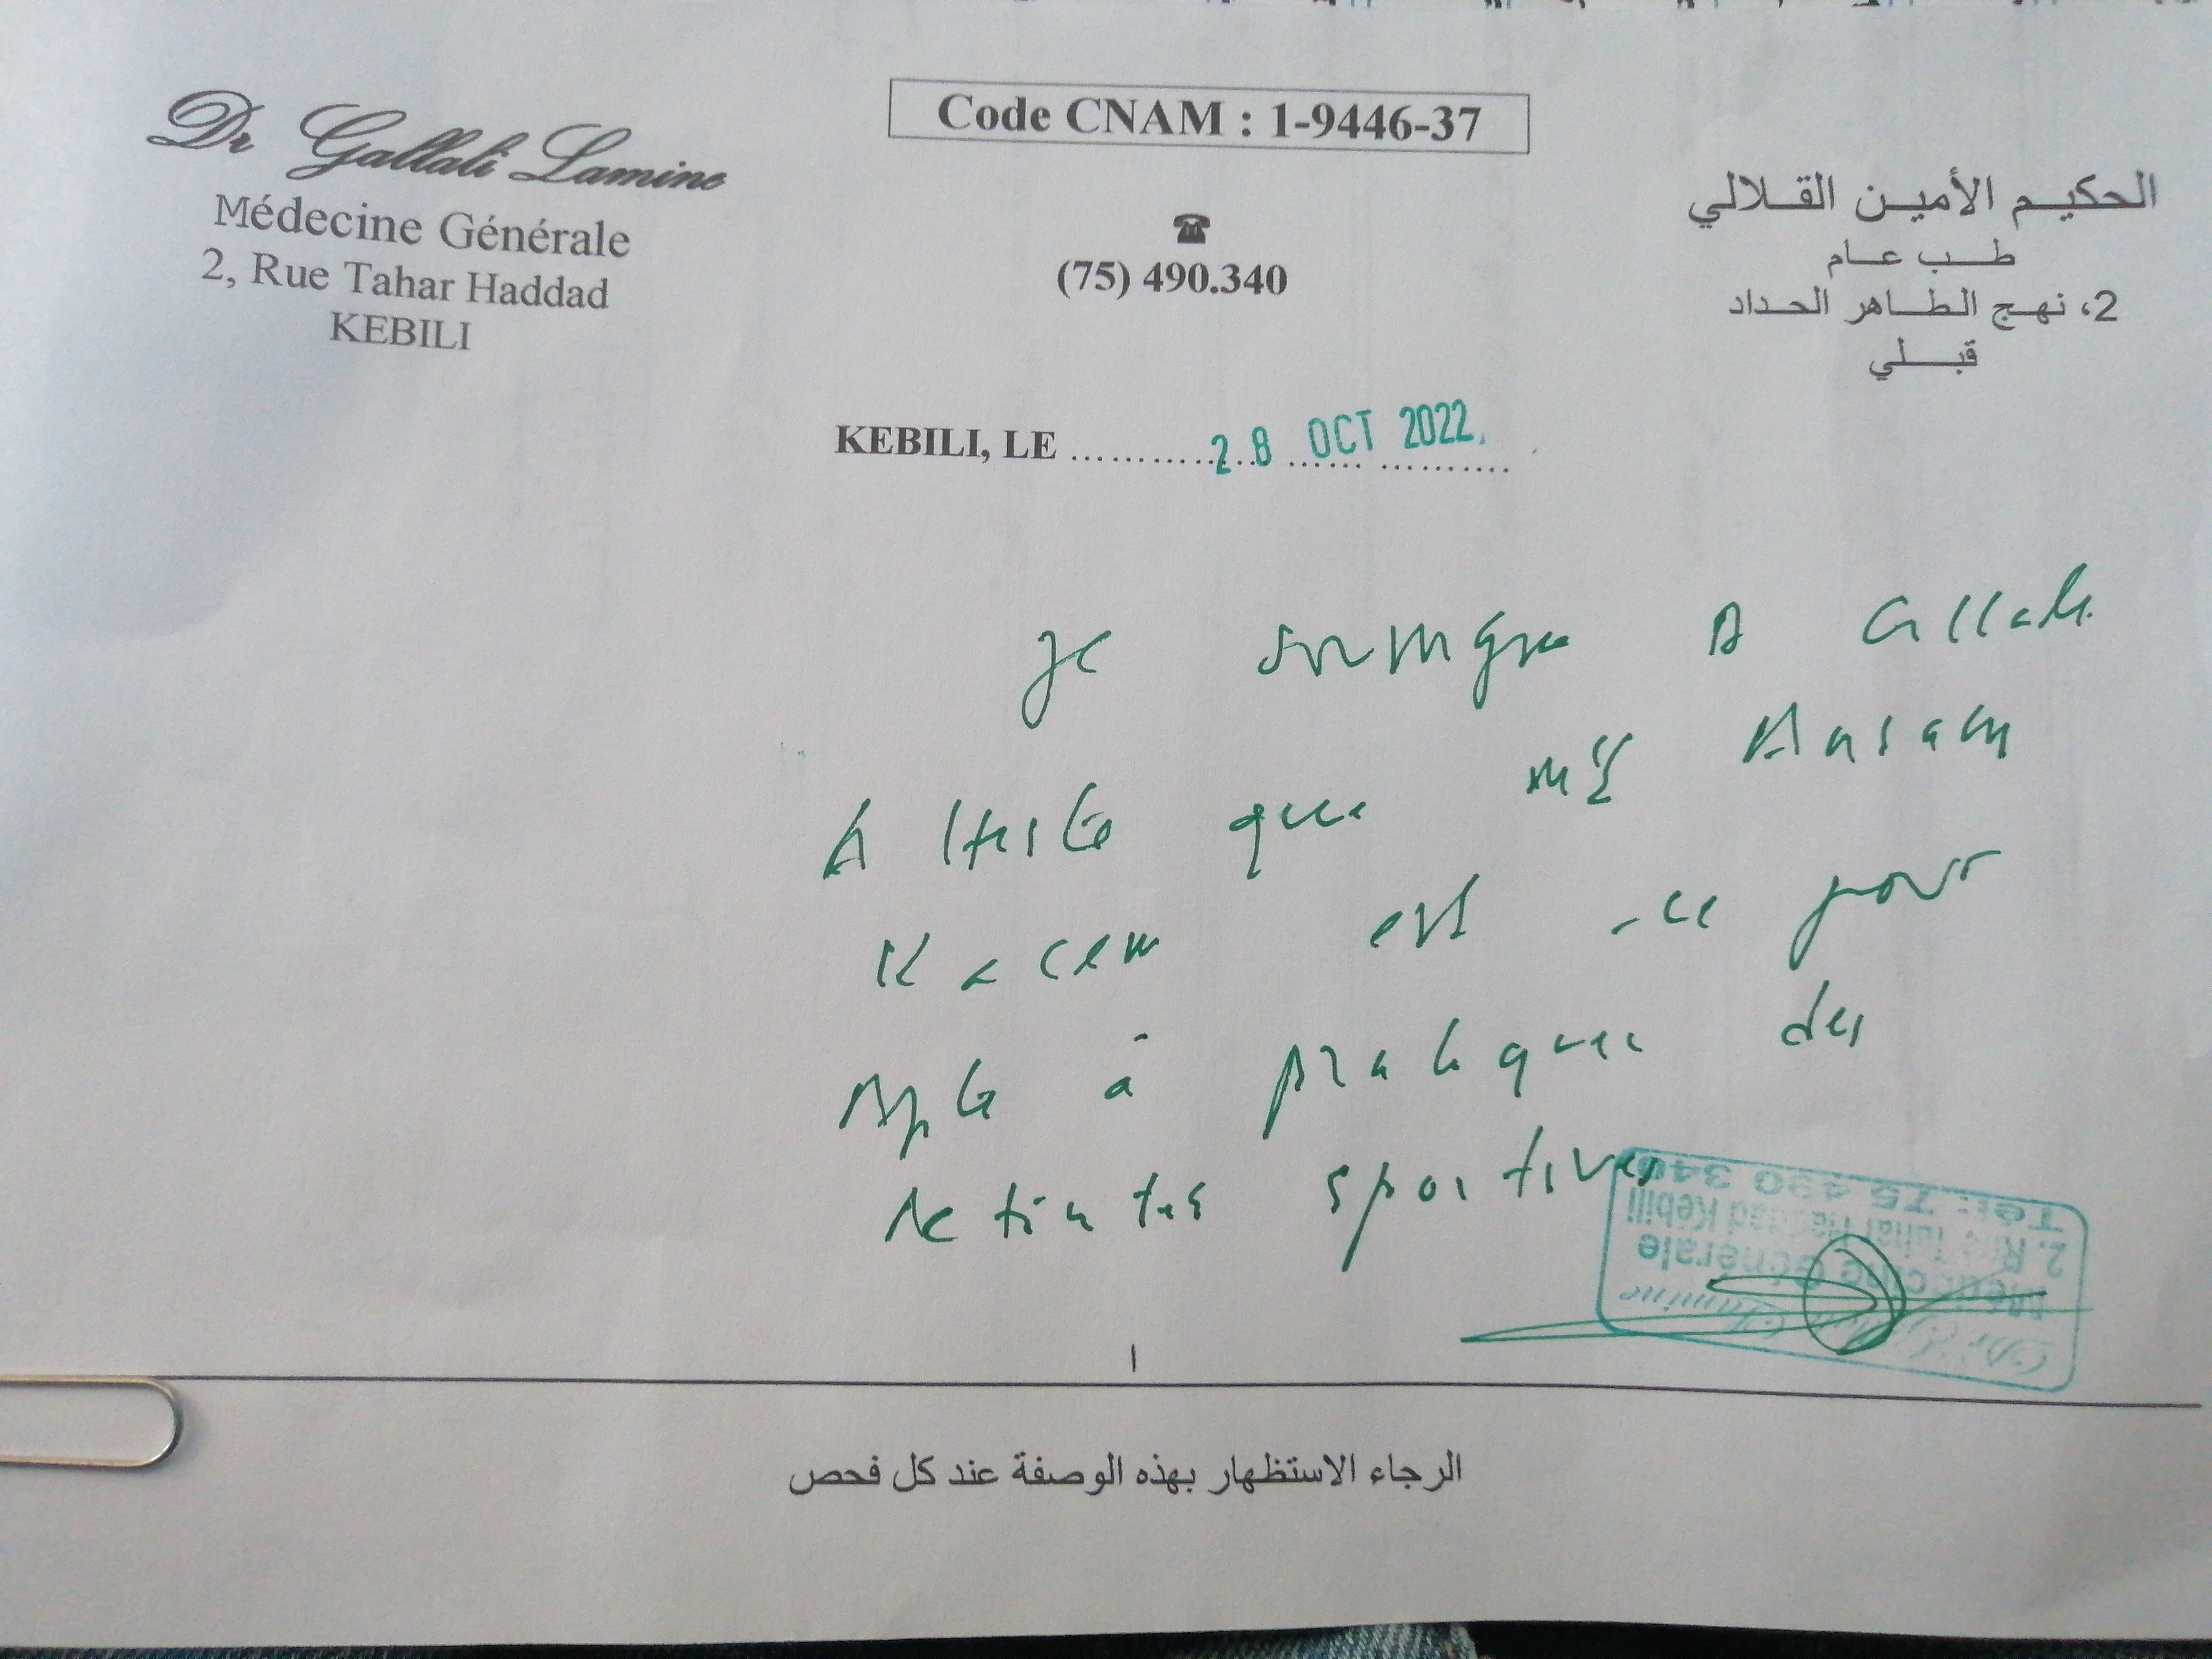 Dr Gallali Lamine
Médecine Générale
2, Rue Tahar Haddad
KEBILI
Code CNAM : 1-9446-37
☎
(75) 490.340
الحكيم الأمين القلالي
طب عام
2، نهج الطاهر الحداد
قبلي
KEBILI, LE ........... 28 OCT 2022
Je soussigné Dr Gallali
Atteste que
Kacem est ce jour
Apte à pratiquer des
activités sportives
Tél: 75 490 340
2. Rue Tahar Haddad Kébili
Médecine Générale
Dr. Lamine
الرجاء الاستظهار بهذه الوصفة عند كل فحص